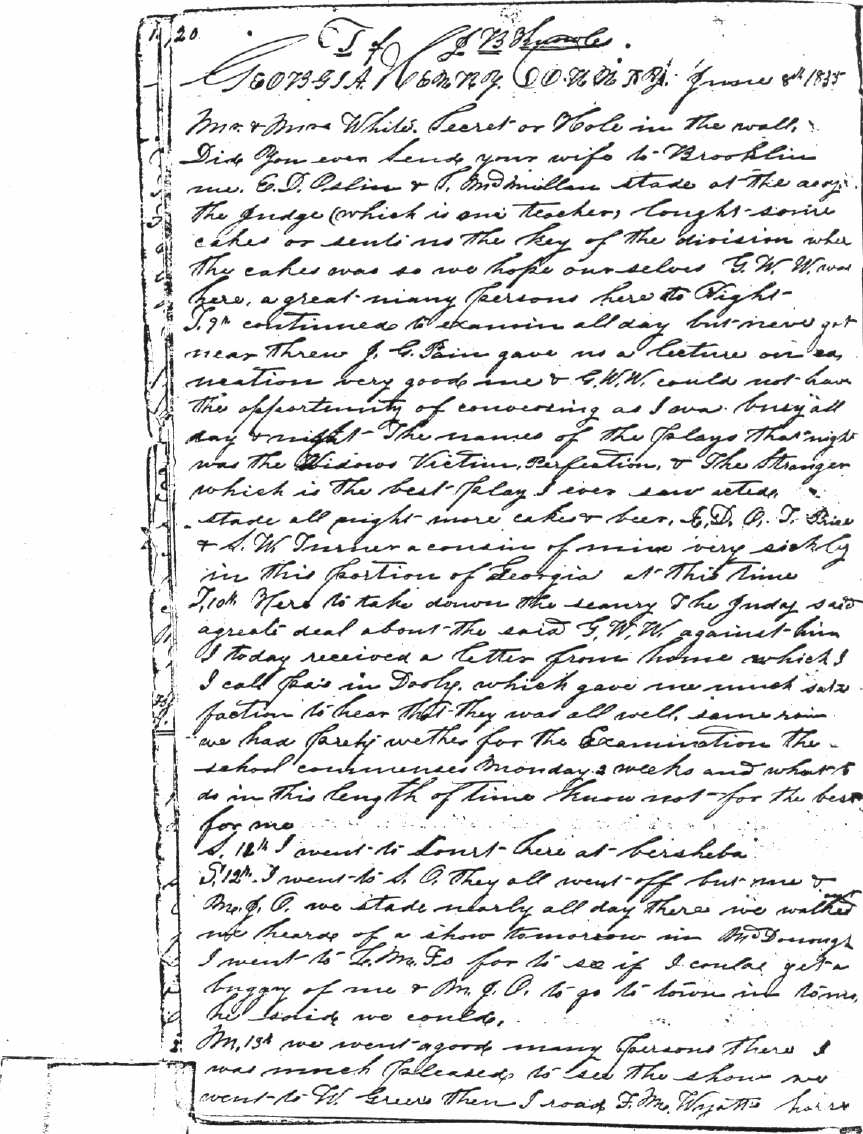 120
T of J B
GEORGIA. HENRY COUNTY. June 8th 1835
Mr. & Mrs White. Secret or Hole in the wall.
Did You ever Send your wife to Brooklin
me. E. D. Oslin & T. McMullen stade at the
the Judge (which is our teacher) bought some
cakes or sent us the key of the division wher
the cakes was so we hope our selves G. W. W. was
here, a great many persons here to Night
T. 9th continued to examin all day but never got
near threw J. G. Pain gave us a lecture on ed
ucation very good me & G. W. W. could not have
the opportunity of conversing as I was busy all
day & night The names of the plays that night
was the Widows Victim, Perfection, & The Stranger
which is the best play I ever saw acted.
stade all night more cakes & beer. E. D. O. T. Price
& S. W. Turner a cousin of mine very sickly
in this portion of Georgia at this time
T. 10th Here to take down the seanry The Judg said
a great deal about the said G. W. W. against him
I today received a letter from home which I
I call pa's in Dooly. which gave me much satis
faction to hear that they was all well. some rain
we had prety wether for the Examination the
school commenses Monday 2 weeks and what to
do in this length of time know not for the best
for me
S. 11th I went to Court here at bersheba
S. 12th I went to S. O. they all went off but me &
M. J. O. we stade nearly all day there we walked
we heard of a show tomorrow in McDonough
I went to L. M. Fs for to se if I could get a
buggy of me & M. J. O. to go to town in
he said we could.
M. 13th we went a good many persons there I
was much pleased to see the show we
went to W. Greer then I road F. M. Wyatts horse